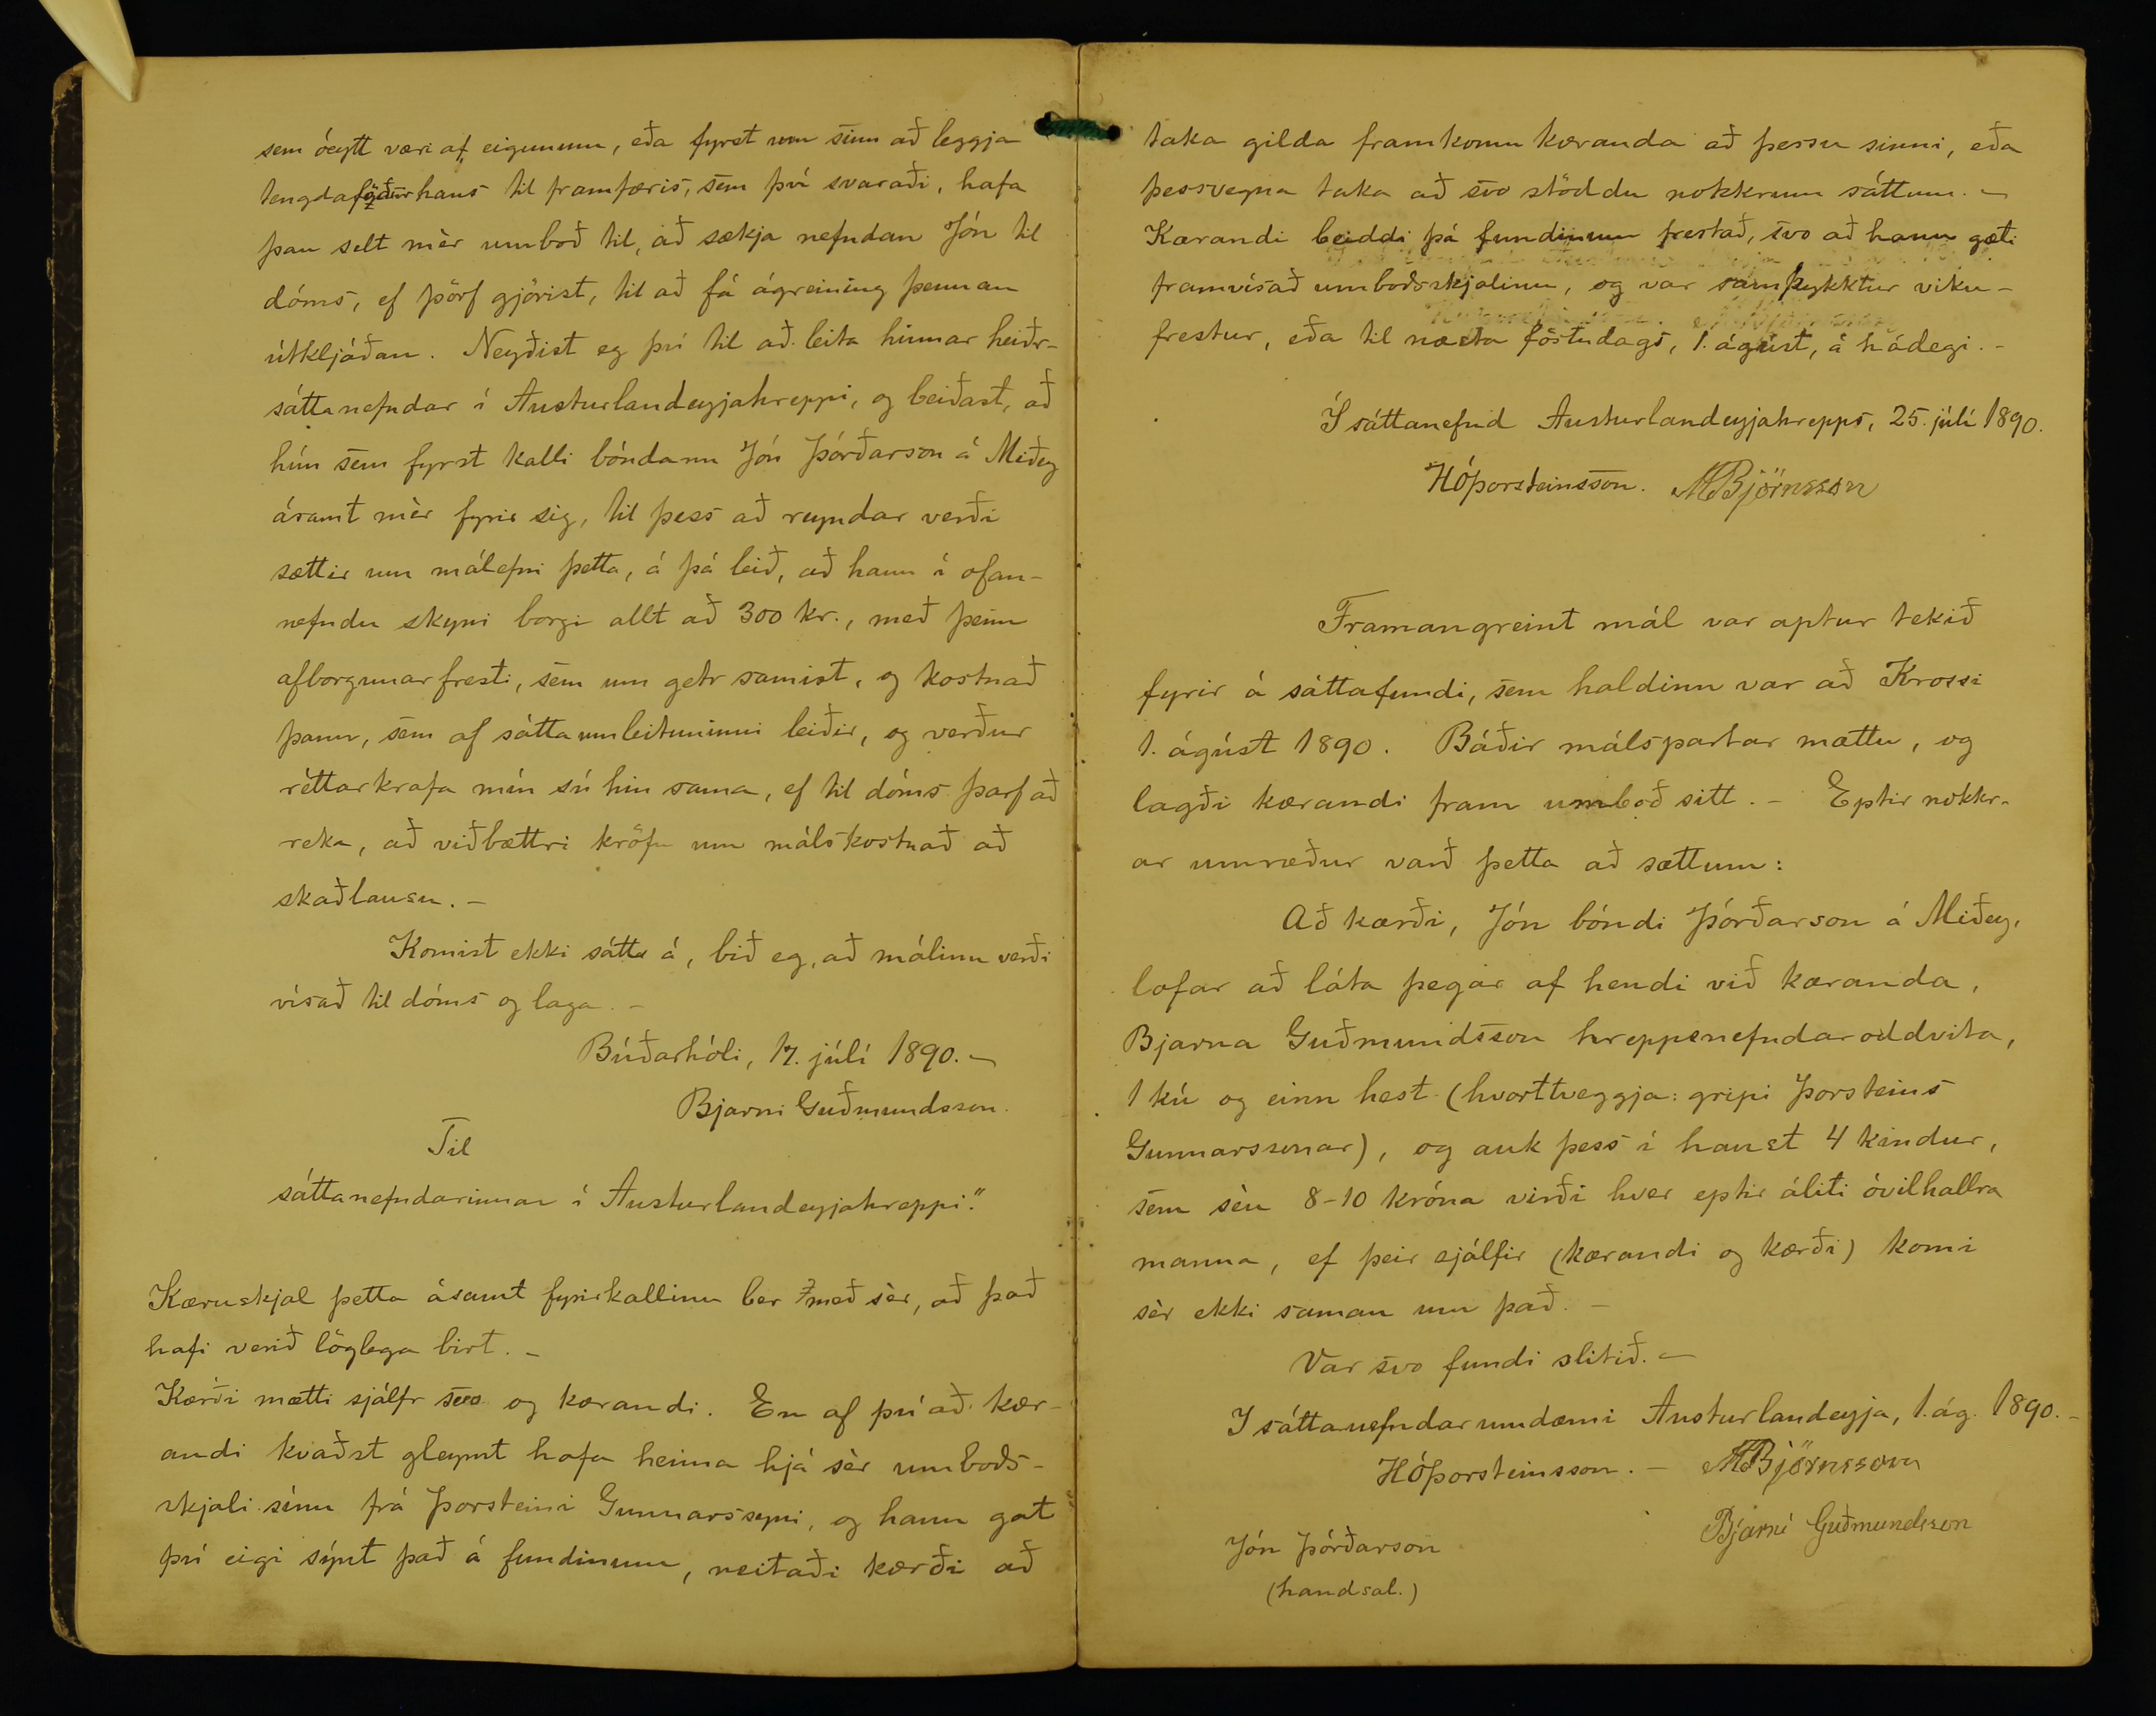 sem óeytt væri af eigununum, eða fyrst um sinn að leggja
tengdaföður hans til framfæris, sem því svaraði, hafa
þau selt mèr umboð til, að sækja nefndan Jón til
dóms, ef þörf gjörist, til að fá ágreining þennan
útkljáðan. Neyðist eg því til að leita hinnar heiðr-
sáttanefndar í Austurlandeyjahreppi, og beiðast, að
hún sem fyrst kalli bóndann Jón Þórðarson á Miðey
ásamt mèr fyrir sig, til þess að reyndar verði
sættir um málefni þetta, á þá leið, að hann í ofan-
nefndu skyni borgi allt að 300 kr., með þeim
afborgunarfresti, sem um getr samist, og kostnað
þann, sem af sáttaumleituninni leiðir, og verður
réttarkrafa mín sú hin sama, ef til dóms þarf að
reka, að viðbættri kröfu um málskostnað að
skaðlausu. -
Komist ekki sátta á, bið eg, að málinu verði
vísað til dóms og laga. -
Búðarhóli, 17. júlí 1890. -
Bjarni Guðmundsson.
Til
sáttanefndarinnar í Austurlandeyjahreppi."
Kæruskjal þetta ásamt fyrirkallinu ber með sèr, að það
hafi verið löglega birt. -
Kærði mætti sjálfr svo og kærandi. En af því að kær-
andi kvaðst gleymt hafa heima hjá sèr umboðs-
skjali sínu frá Þorsteini Gunnarssyni, og hann gat
því eigi sýnt það á fundinum, neitaði kærði að
taka gilda framkomu kæranda að þessu sinni, eða
þessvegna taka að svo stöddu nokkrum sáttum. -
Kærandi beiddi þá fundinum frestað, svo að hann gæti
framvísað umboðsskjalinu, og var samþykktur viku-
frestur, eða til næsta föstudags, 1. ágúst, á hádegi. -
Í sáttanefnd Austurlandeyjahrepps, 25. júlí 1890.
HÓÞorsteinsson. MBjörnsson
Framangreint mál var aptur tekið
fyrir á sáttafundi, sem haldinn var að Krossi
1. ágúst 1890. Báðir málspartar mættu, og
lagði kærandi fram umboð sitt. - Eptir nokkr-
ar umræður varð þetta að sættum:
Að kærði, Jón bóndi Þórðarson á Miðey,
lofar að láta þegar af hendi við kæranda,
Bjarna Guðmundsson hreppsnefndaroddvita,
1 kú og einn hest (hvorttveggja: gripi Þorsteins
Gunnarssonar), og auk þess í haust 4 kindur,
sem sèu 8-10 króna virði hver eptir áliti óvilhallra
manna, ef þeir sjálfir (kærandi og kærði) komi
sèr ekki saman um það. -
Var svo fundi slitið. -
Í sáttanefndarumdæmi Austurlandeyja, 1. ág. 1890. -
HÓÞorsteinsson. - MBjörnsson
Bjarni Guðmundsson
Jón Þórðarson
(handsal.)